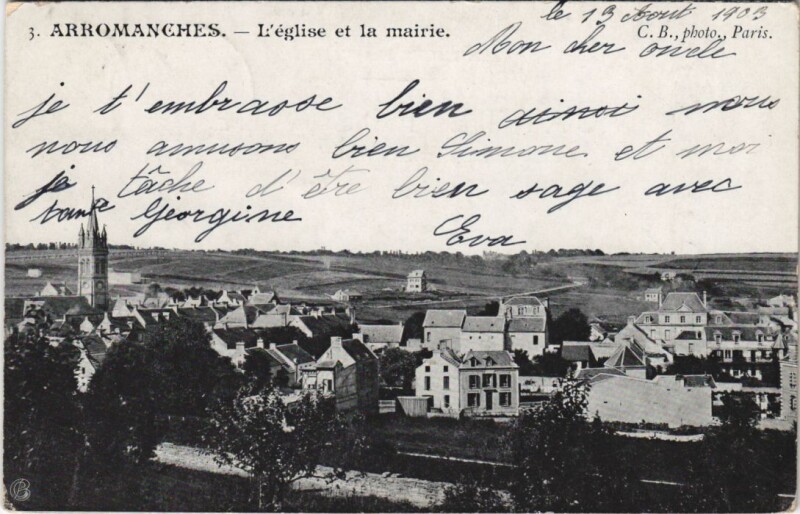 3. ARROMANCHES. — L'église et la mairie.
C. B., photo., Paris.
le 13 Aout 1903
Mon cher oncle
je t'embrasse bien ainsi nous
nous amusons bien Simone et moi
je tâche d'être bien sage avec
tante Georgine
Eva
CB